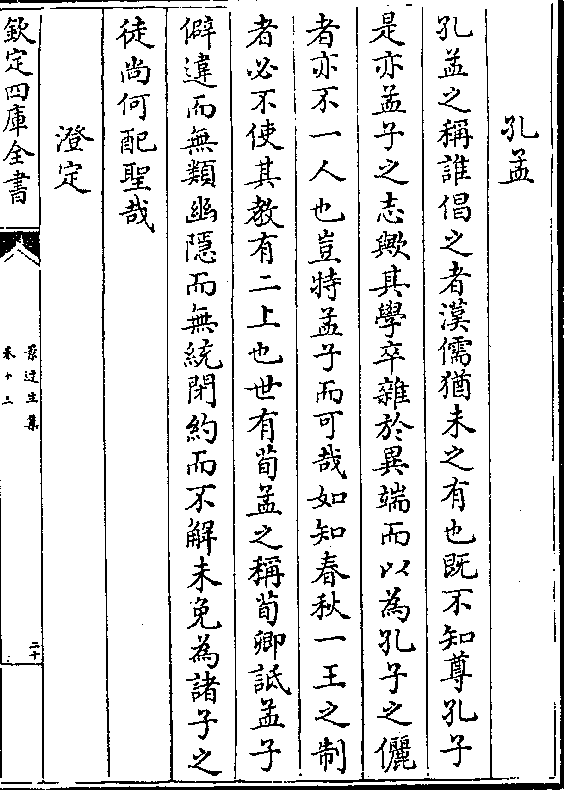 孔孟
孔孟之稱誰倡之者漢儒猶未之有也既不知尊孔子
是亦孟子之志歟其學卒雜於異端而以為孔子之儷
者亦不一人也豈特孟子而可哉如知春秋一王之制
者必不使其教有二上也世有荀孟之稱荀卿詆孟子
僻違而無類幽隱而無統閉約而不解未免為諸子之
徒尚何配聖哉
澄定
欽定四庫全書
景迂生集
卷十三
二十